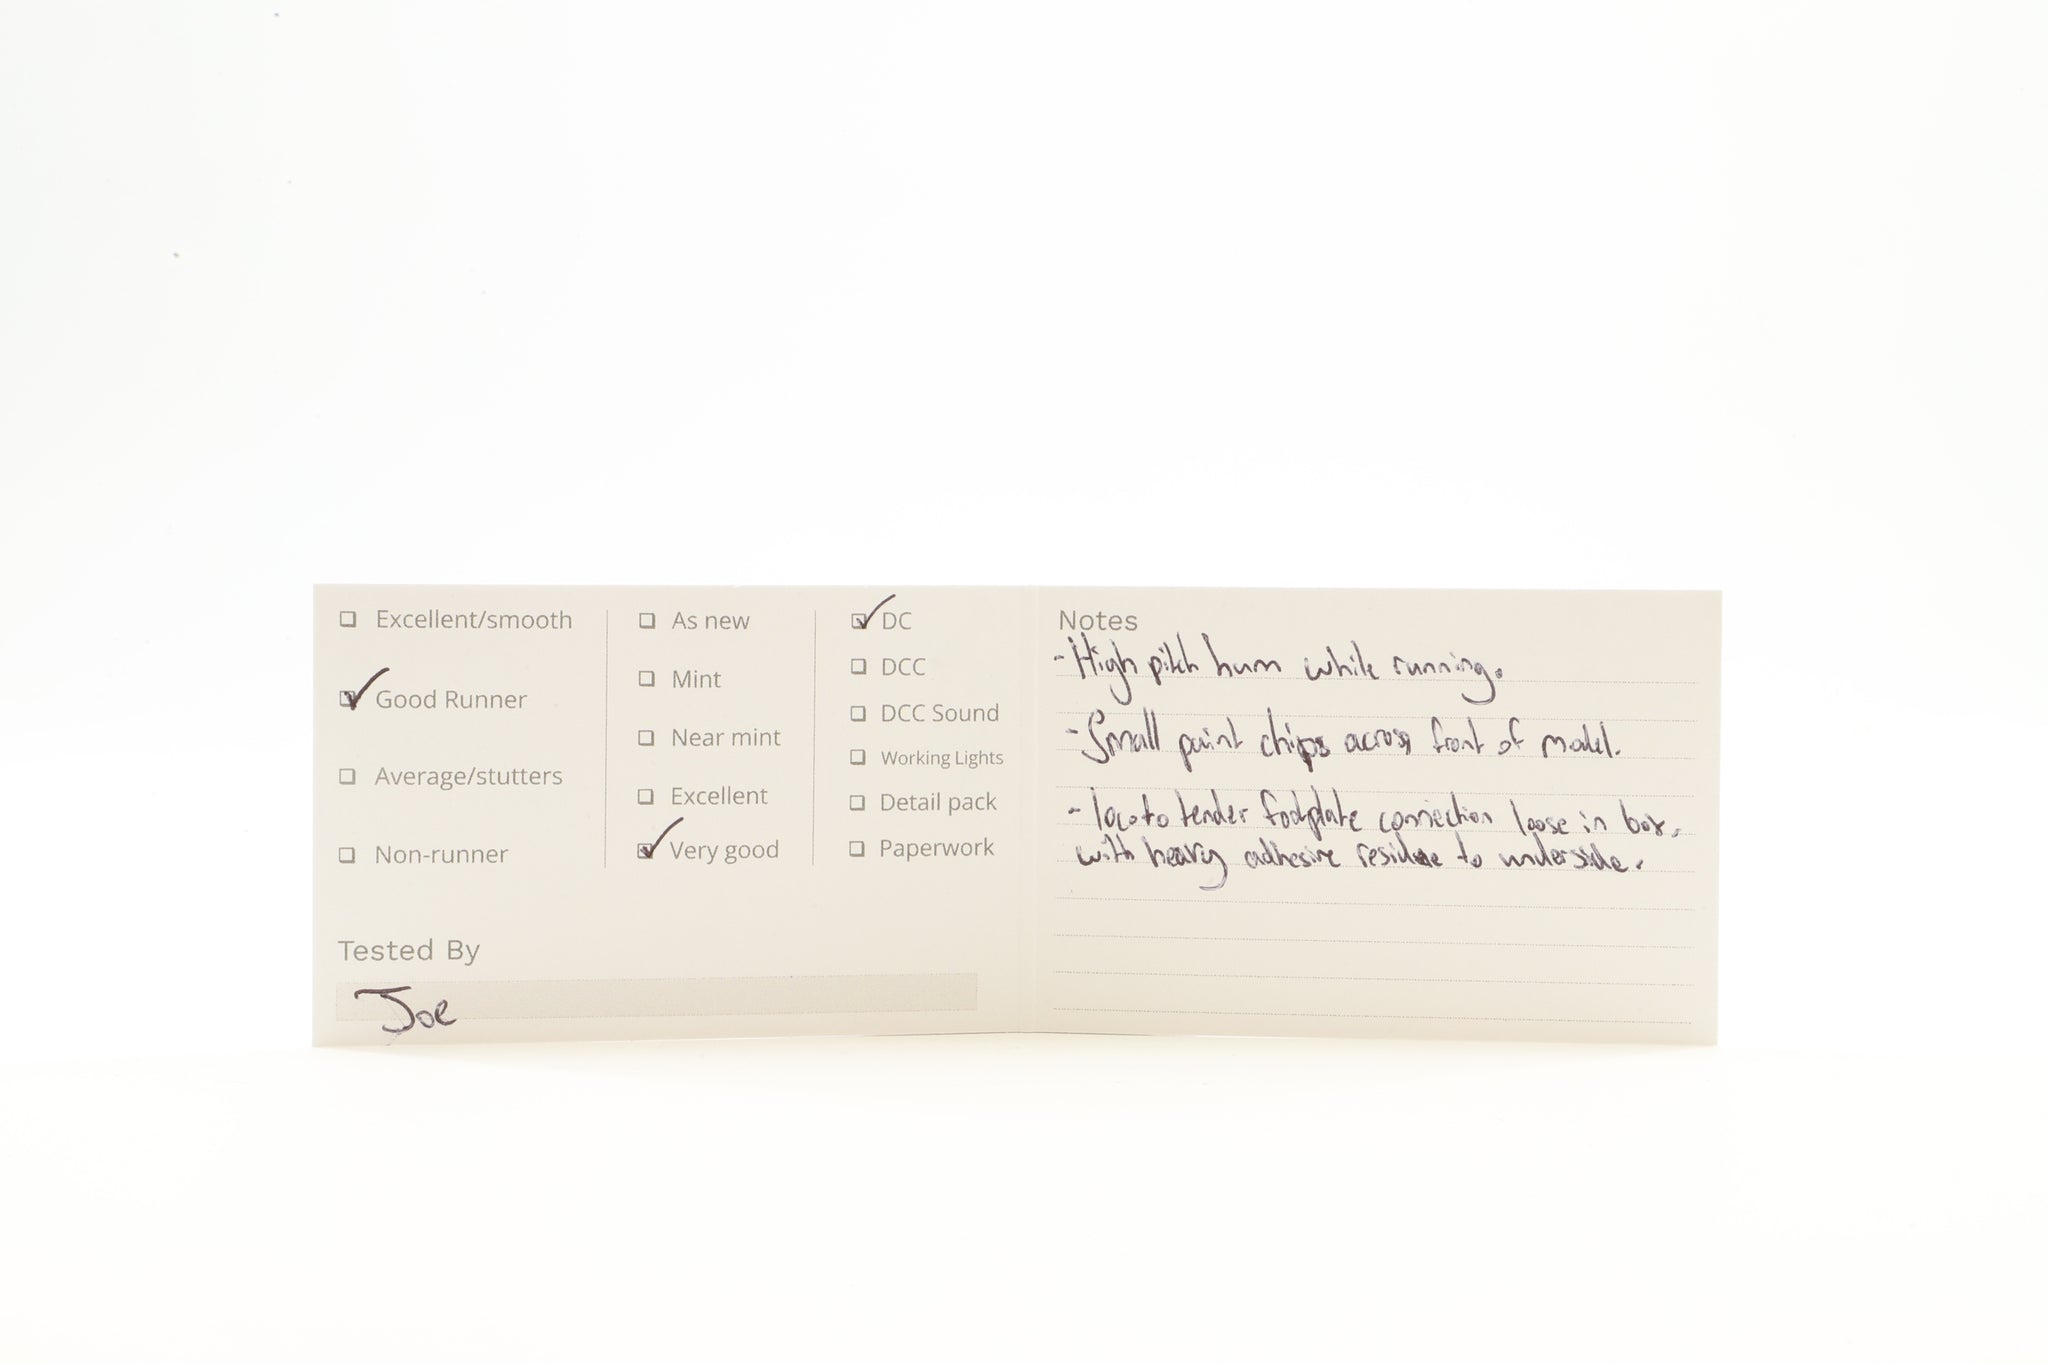 Excellent/smooth
Good Runner
Average/stutters
Non-runner
As new
Mint
Near mint
Excellent
Very good
DC
DCC
DCC Sound
Working Lights
Detail pack
Paperwork
Tested By
Joe
Notes
- High pitch hum while running.
- Small paint chips across front of model.
- loco to tender footplate connection loose in box.
with heavy adhesive residue to underside.